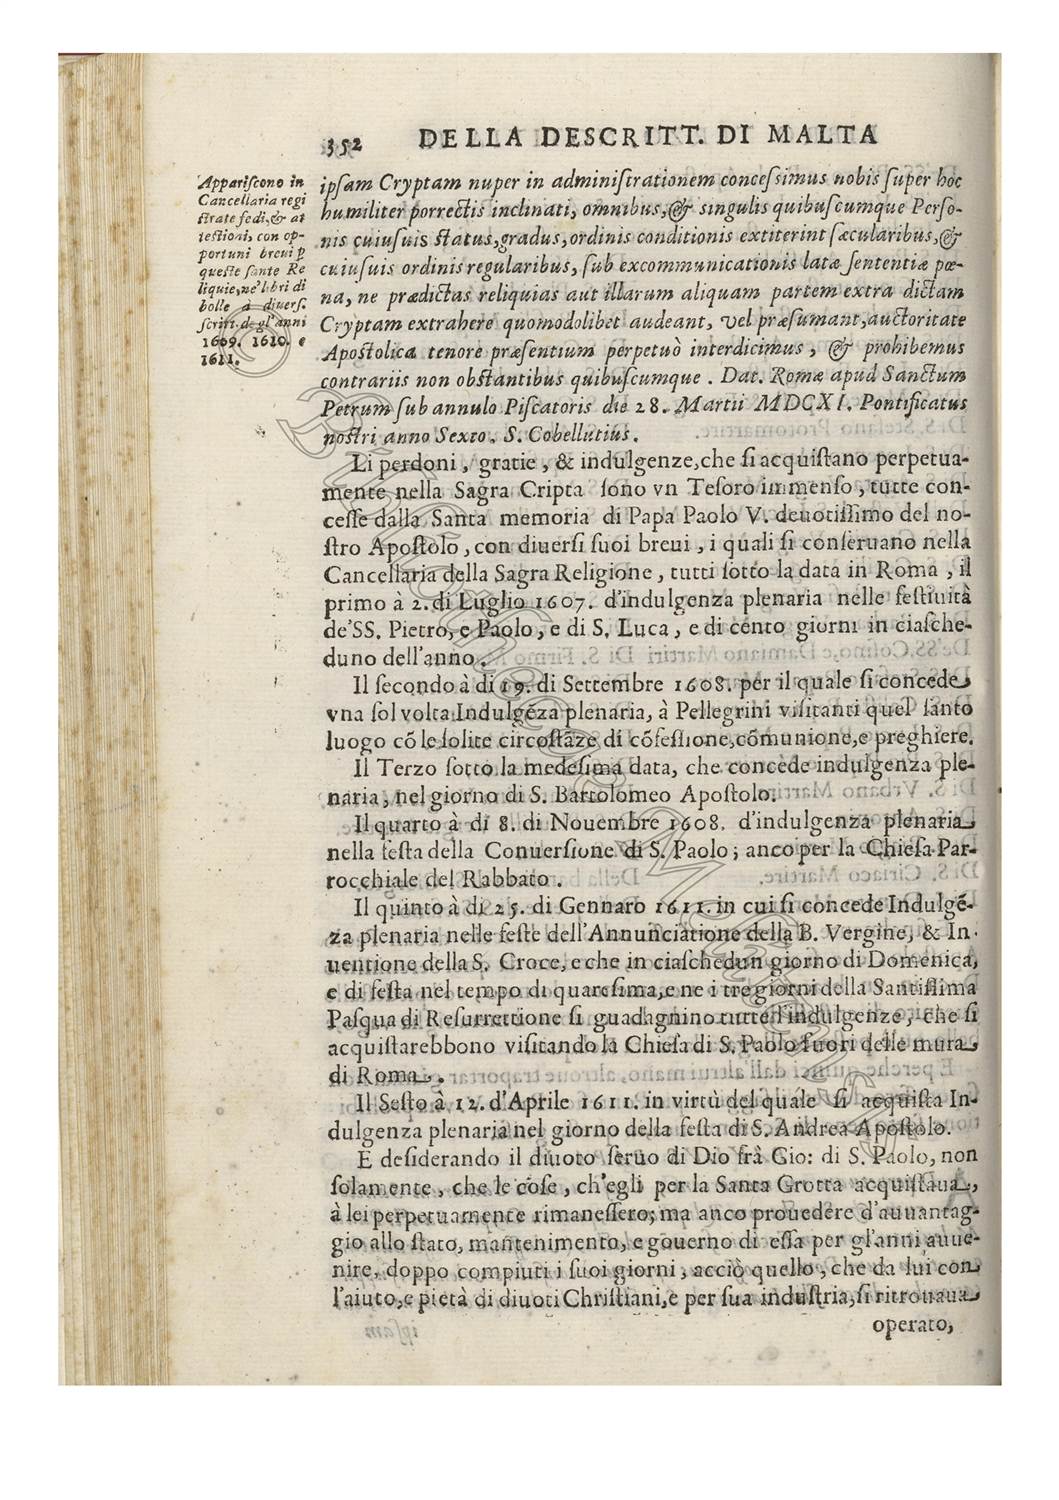 352 DELLA DESCRITT. DI MALTA
Appariſcono in
Cancellaria regi
ſtrate fedi,& at
teſtioni, con op-
portuni breui ꝑ
queſte ſante Re
liquie,ne' libri di
bolle à diuerſ.
ſcritt. de gl'anni
1609. 1610. e
1611.
ipſam Cryptam nuper in adminiſtrationem conceſsimus nobis ſuper hoc
humiliter porrectis inclinati, omnibus,& singulis quibuſcumque Perſo-
nis cuiuſuis ſtatus,gradus,ordinis conditionis extiterint ſæcularibus,&
cuiuſuis ordinis regularibus, ſub excommunicationis latæ ſententiæ pœ-
na, ne prædictas reliquias aut illarum aliquam partem extra dictam
Cryptam extrahere quomodolibet audeant, vel præſumant,auctoritate
Apoſtolica tenore præſentium perpetuò interdicimus, & prohibemus
contrariis non obſtantibus quibuſcumque . Dat. Romæ apud Sanctum
Petrum ſub annulo Piſcatoris die 28. Martii MDCXI. Pontificatus
noſtri anno Sexto. S. Cobellutius.
Li perdoni, gratie, & indulgenze,che ſi acquiſtano perpetua-
mente nella Sagra Cripta ſono vn Teſoro immenſo, tutte con-
ceſſe dalla Santa memoria di Papa Paolo V. deuotiſſimo del no-
ſtro Apoſtolo, con diuerſi ſuoi breui, i quali ſi conſeruano nella
Cancellaria della Sagra Religione, tutti ſotto la data in Roma, il
primo à 2. di Luglio 1607. d'indulgenza plenaria nelle feſtiuità
de'SS. Pietro, e Paolo, e di S. Luca, e di cento giorni in ciaſche-
duno dell'anno.
Il ſecondo à di 19. di Settembre 1608. per il quale ſi concede
vna ſol volta Indulgẽza plenaria, à Pellegrini viſitanti quel ſanto
luogo cõ le ſolite circoſtãze di cõfeſſione,cõmunione,e preghiere.
Il Terzo ſotto la medeſima data, che concede indulgenza ple-
naria, nel giorno di S. Bartolomeo Apoſtolo.
Il quarto à di 8. di Nouembre 1608. d'indulgenza plenaria
nella feſta della Conuerſione di S. Paolo; anco per la Chieſa Par-
rocchiale del Rabbato .
Il quinto à di 25. di Gennaro 1611. in cui ſi concede Indulgẽ-
za plenaria nelle feſte dell'Annunciatione della B. Vergine, & In-
uentione della S. Croce, e che in ciaſchedun giorno di Domenica,
e di feſta nel tempo di quareſima,e ne i tre giorni della Santiſſima
Paſqua di Reſurrettione ſi guadagnino tutte l'indulgenze, che ſi
acquiſtarebbono viſitando la Chieſa di S. Paolo fuori delle mura
di Roma.
Il Seſto à 12. d'Aprile 1611. in virtù del quale ſi acquiſta In-
dulgenza plenaria nel giorno della feſta di S. Andrea Apoſtolo.
E deſiderando il diuoto ſeruo di Dio frà Gio: di S. Paolo, non
ſolamente, che le coſe, ch'egli per la Santa Grotta acquiſtaua,
à lei perpetuamente rimaneſſero; ma anco prouedere d'auuantag-
gio allo ſtato, mantenimento, e gouerno di eſſa per gl'anni auue-
nire, doppo compiuti i ſuoi giorni, acciò quello, che da lui con
l'aiuto,e pietà di diuoti Chriſtiani,e per ſua induſtria,ſi ritrouaua
operato,